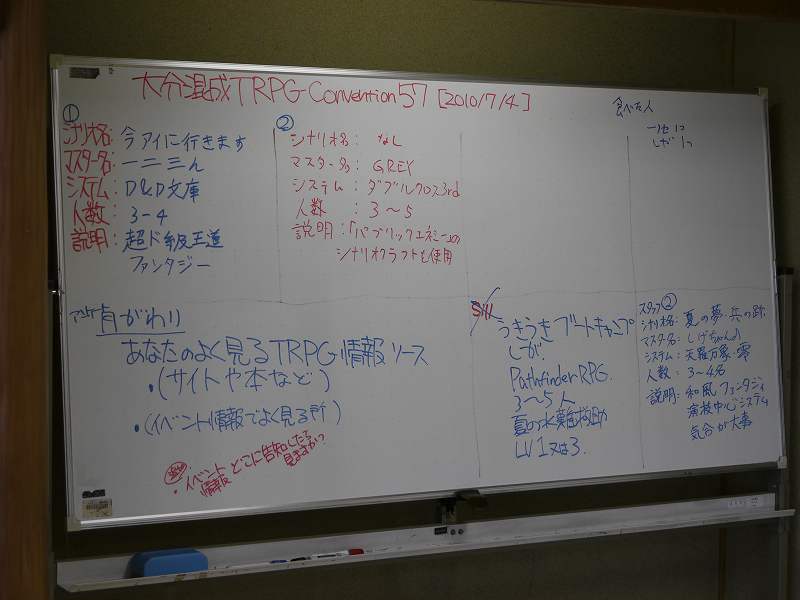 大分混成TRPG Convention 57 [2010/7/4]
①
シナリオ名: 今アイに行きます
マスター名: 一二三ん
システム: D&D文庫
人数: 3-4
説明: 超ド級王道
ファンタジー
②
シナリオ名: なし
マスター名: GREY
システム: ダブルクロス3rd
人数: 3～5
説明:「パブリックエネミー」の
シナリオクラフトを使用
食べた人
しが 1コ
肩がわり
あなたのよく見るTRPG情報ソース
・(サイトや本など)
・(イベント情報でよく見る所)
・イベント情報 どこに告知したら
見ますか?
うきうきブートキャンプ
しが.
PathfinderRPG.
3～5人
夏の水難救助
LV1又は3.
スタッフ②
シナリオ名: 夏の夢・兵の跡.
マスター名: しげちゃん♪
システム: 天羅万象・零
人数: 3～4名
説明: 和風ファンタジィ
演技中心システム
気合が大事